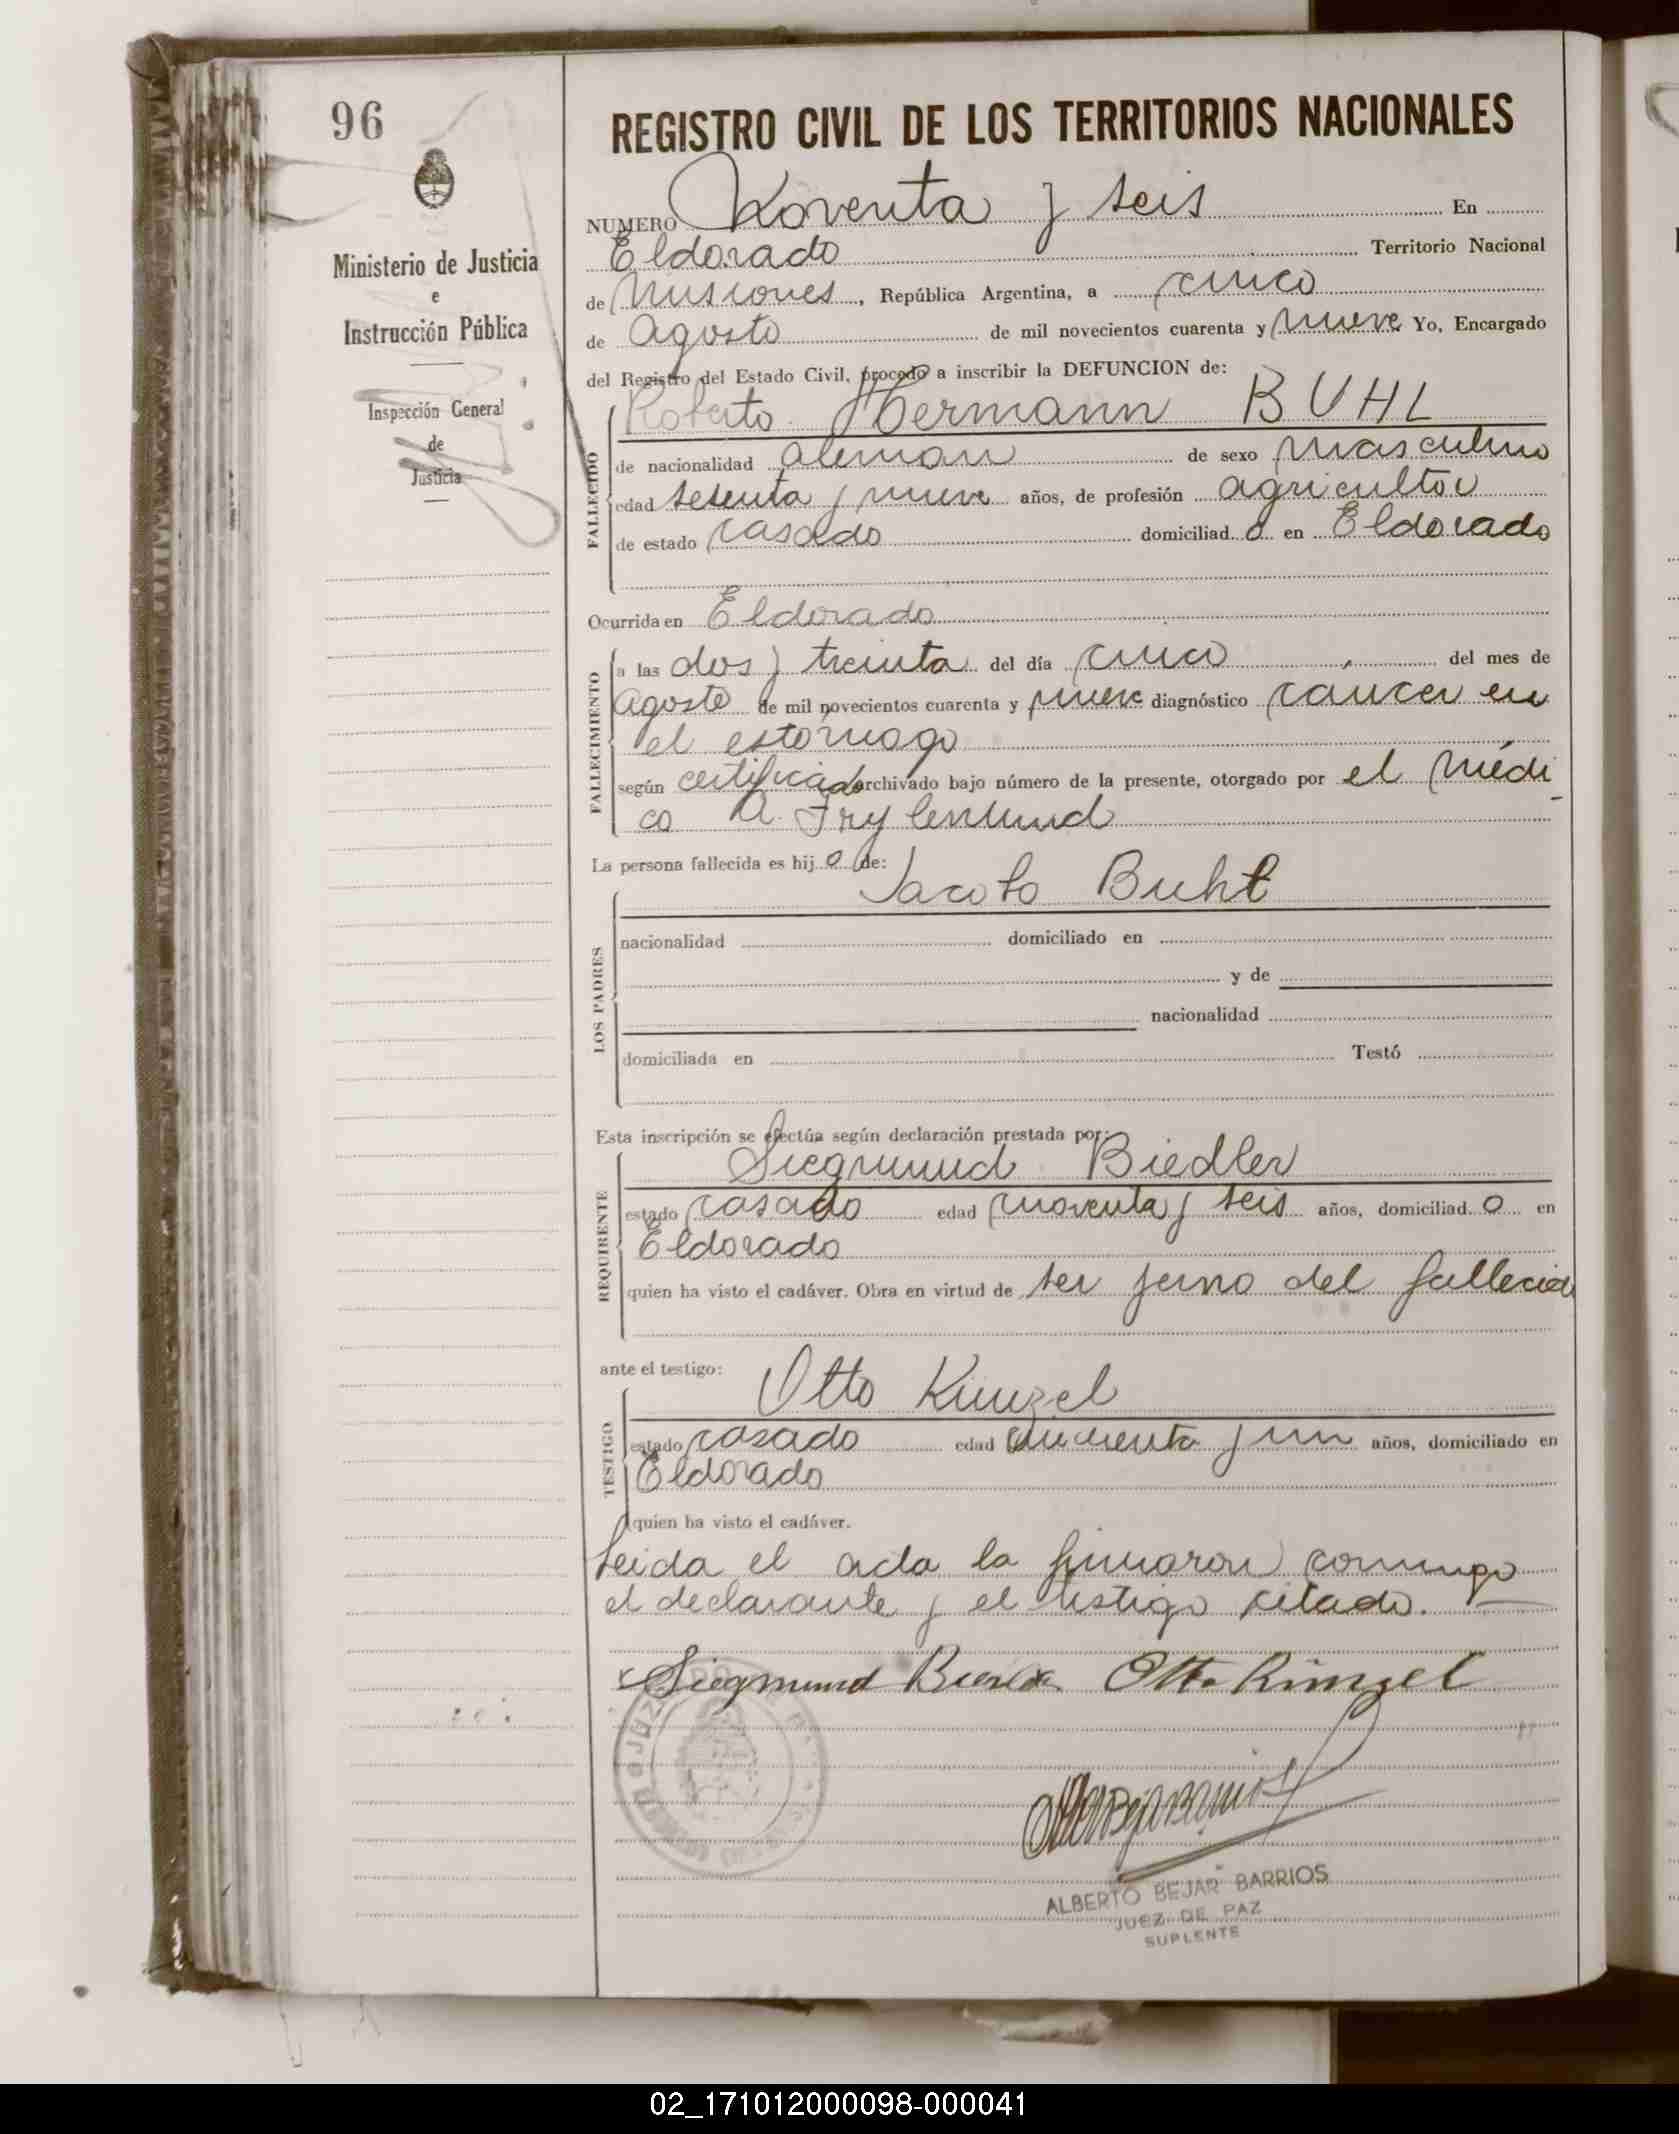 96
Ministerio de Justicia
e
Instrucción Pública
Inspección General
de
Justicia
REGISTRO CIVIL DE LOS TERRITORIOS NACIONALES
NUMERO Noventa y seis En
Eldorado Territorio Nacional
de Misiones, República Argentina, a cinco
de agosto de mil novecientos cuarenta y nueve Yo, Encargado
del Registro del Estado Civil, procedo a inscribir la DEFUNCION de:
Roberto Hermann BUHL
FALLECIDO
de nacionalidad aleman de sexo masculino
edad setenta y nueve años, de profesión agricultor
de estado casado domiciliad o en Eldorado
Ocurrida en Eldorado
FALLECIMIENTO
a las dos y treinta del día cinco del mes de
agosto de mil novecientos cuarenta y nueve diagnóstico cancer en
el estómago
según certificado archivado bajo número de la presente, otorgado por el médi
co A.
La persona fallecida es hij o de:
Jacobo Buhl
LOS PADRES
nacionalidad domiciliado en
y de
nacionalidad
domiciliada en Testó
Esta inscripción se efectúa según declaración prestada por:
Siegmund Biedler
REQUIRENTE
estado casado edad noventa y seis años, domiciliad o en
Eldorado
quien ha visto el cadáver. Obra en virtud de ser yerno del fallecido
ante el testigo:
Otto Kinzel
TESTIGO
estado casado edad cincuenta y un años, domiciliado en
Eldorado
quien ha visto el cadáver.
Leida el acta la firmaron conmigo
el declarante y el testigo citado.
Siegmund Otto Kinzel
ALBERTO BEJAR BARRIOS
JUEZ DE PAZ
SUPLENTE
02_171012000098-000041